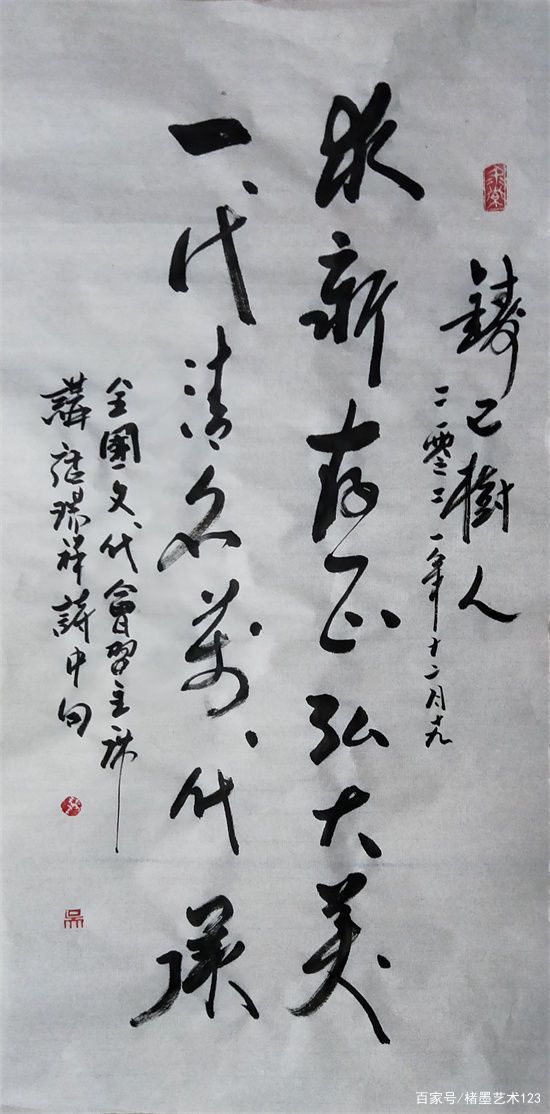 鑄己樹人
二零二一年十二月十九
求新存正弘大美
一代清名萬代
全國文代會習主席
講瑞祥詩中句
百家号/楮墨艺术123